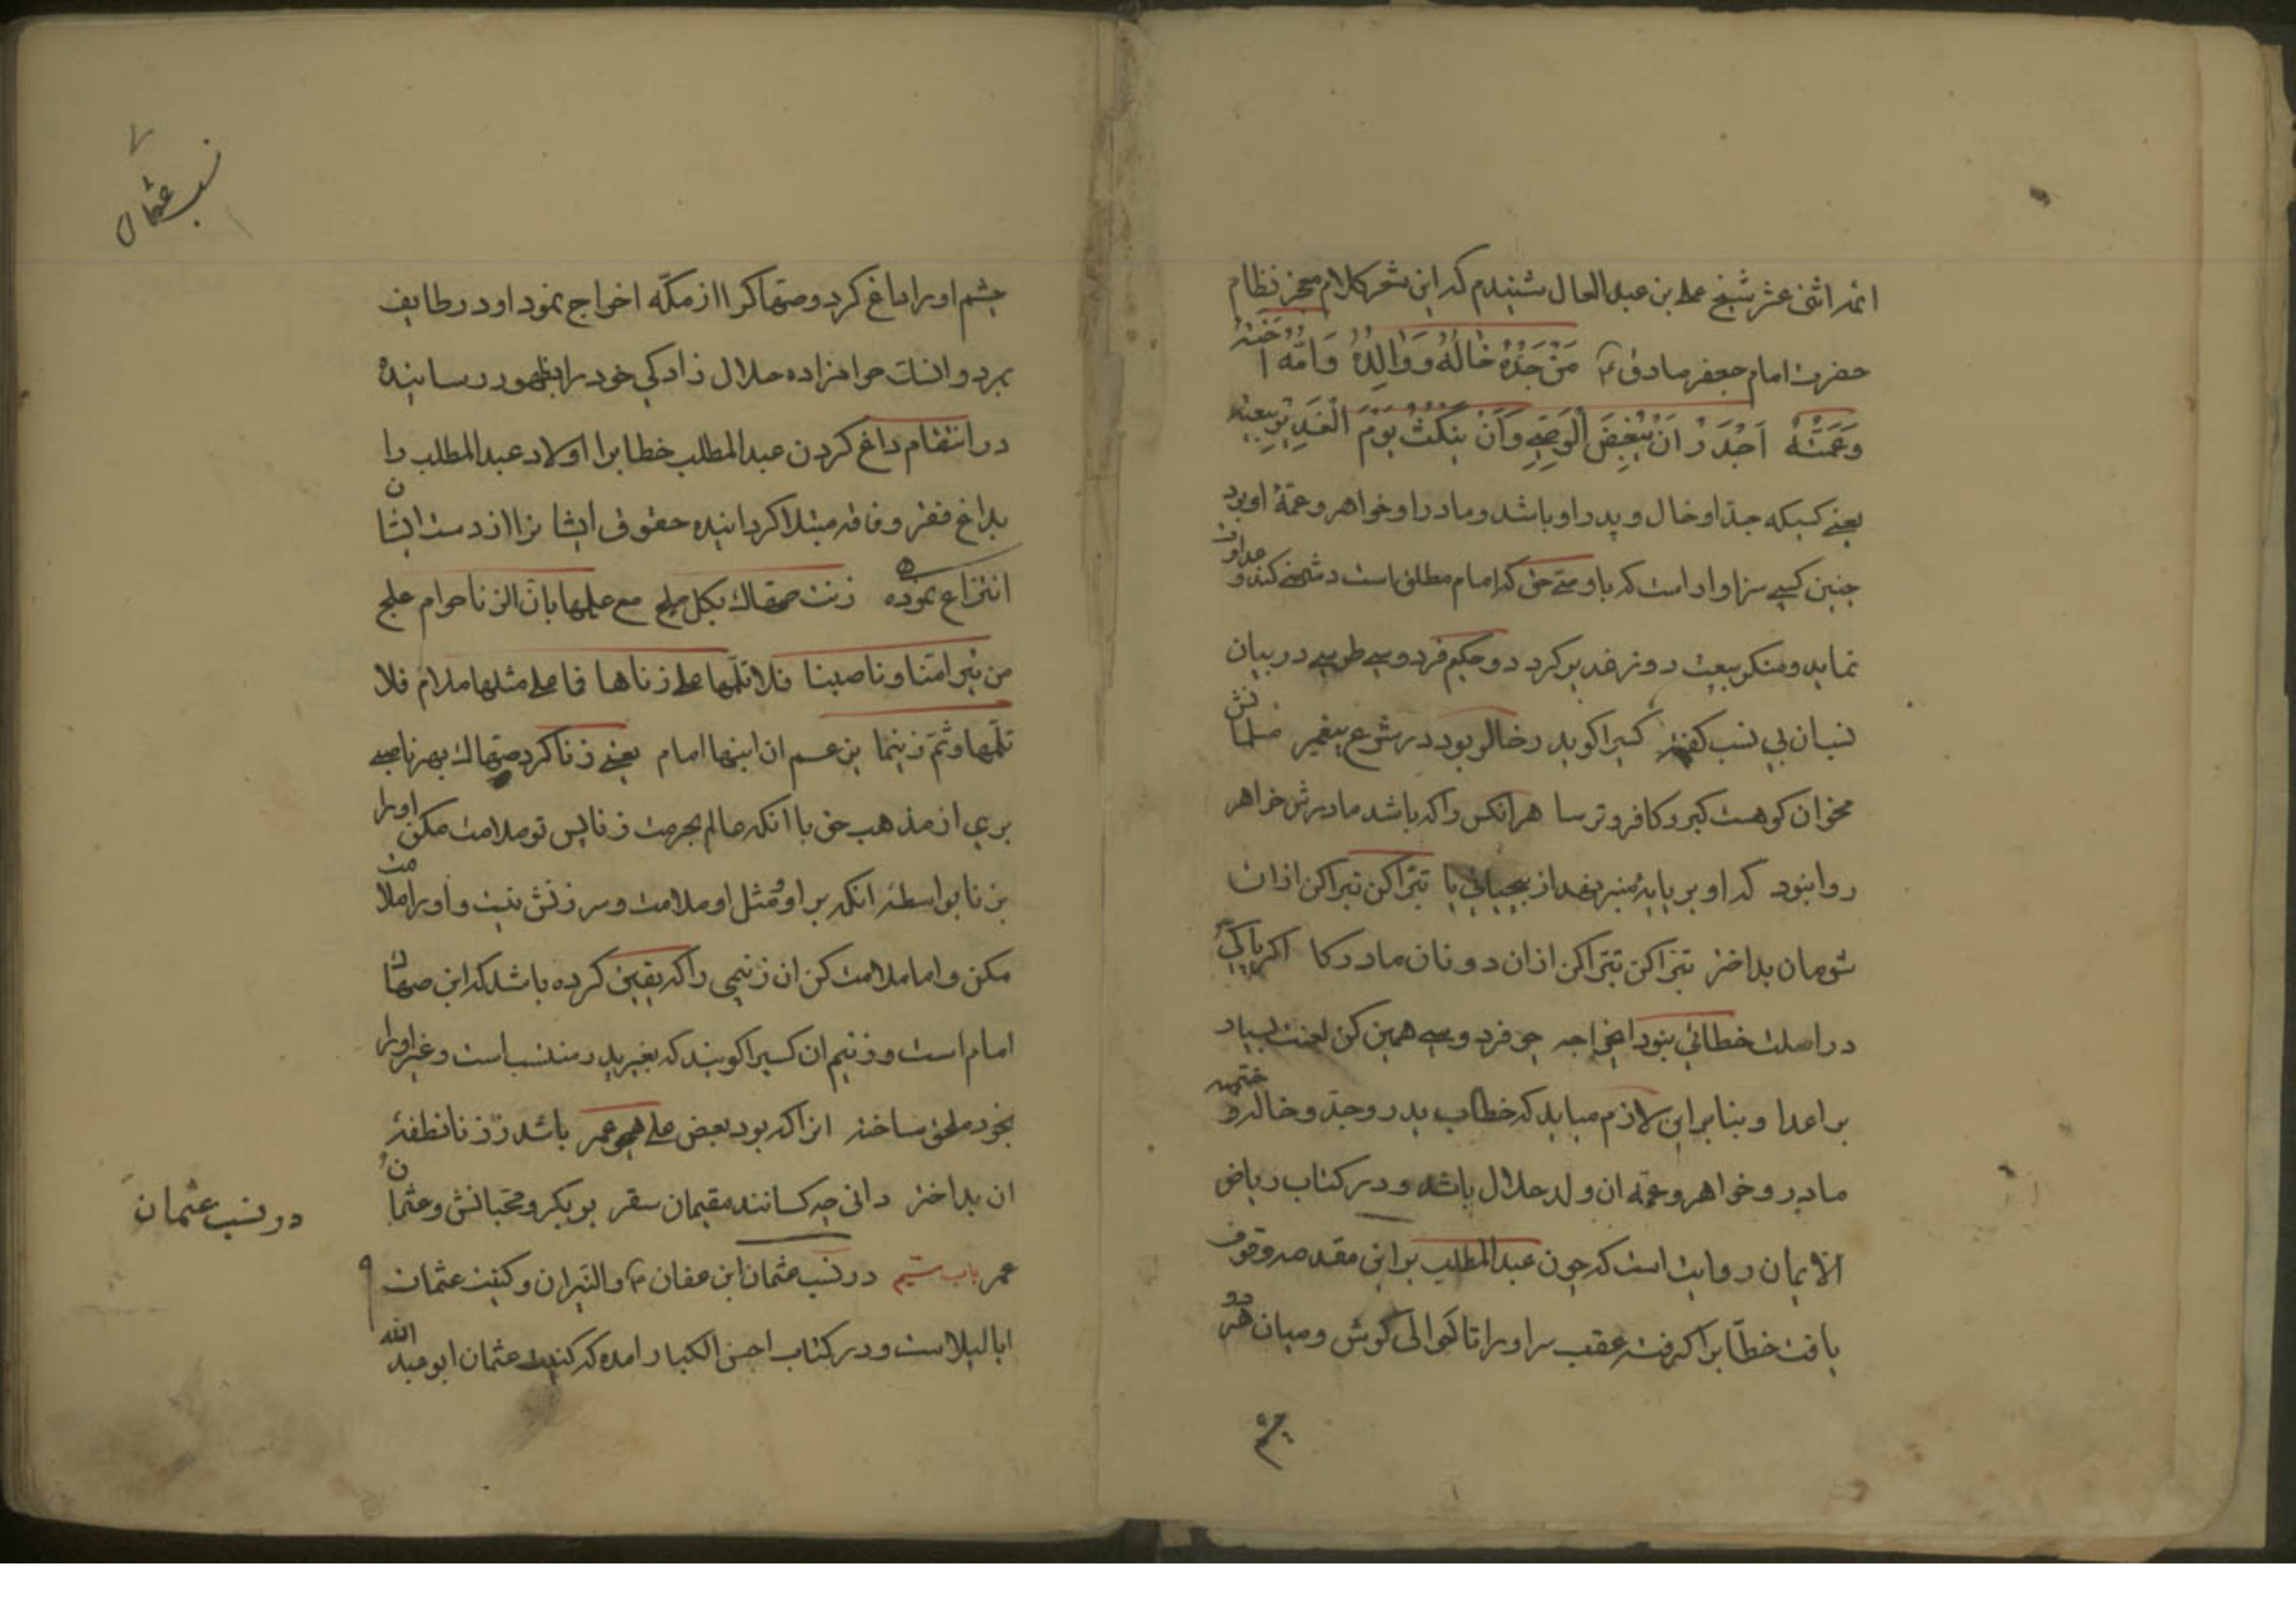 ائمه اثنی عشر شیخ علی بن عبد العال شنیدم که این شعر کلام معجز نظام
حضرت امام جعفر صادق ع مَنْ جَدُّهُ خَالُهُ وَوَالِدُهُ وَاُمُّهُ اُخْتُهُ
وَعَمَّتُهُ اَجْدَرُ اَنْ یُبْغِضَ الْوَصِیَّ وَاَنْ یُنْکِثَ یَوْمَ الْغَدِیرِ بَیْعَتَهُ
یعنی کسیکه جد او خال و پدر او باشد و مادر او خواهر و عمّهٔ او بود
چنین کسی سزاوار است که با وصیّ حق که امام مطلق است دشمنی کند و عداوت
نماید و منکر بیعت روز غدیر کردد و حکیم فردوسی طوسی در بیان
نسبان بی نسب کفته کسیرا کو پدر خالو بود در شرع پیغمبر مسلمانش
مخوان کو هست کبر و کافر و ترسا هر انکس را که باشد مادرش خواهر
روا نبود که او بر پایهٔ منبر نهد از بیحیائی پا تبرّا کن تبرا کن ازان
شومان بداختر تبرّا کن تبرّا کن ازان دونان مادر کا اکر پاکی
در اصلت خطائی نبود ایخواجه چو فردوسی همین کن لعنت بسیار
بر اعدا و بنا بر این لازم میاید که خطاب پدر و جدّ و خال و ختمه
مادر و خواهر و عمّه ان ولد حلال باشد و در کتاب ریاض
الایمان روایت است که چون عبد المطلب بر این مقدمه وقوف
یافت خطّابرا کرفته عقب سر اورا تا حوالی کوش و میان هر دو
چشم
نسب عثمان
چشم اورا داغ کرد و صهاکرا از مکّه اخراج نمود او در طایف
بمرد و انسات حرامزاده حلال زادکی خود را بظهور رسانیده
در انتقام داغ کردن عبد المطلب خطابرا اولاد عبد المطلب را
بداغ فقر و فاقه مبتلا کردانیده حقوق ایشانرا از دست ایشان
انتزاع نموده زنت صهاک بکل علج مع علمها بان الزنا حرام علج
من تیرامتنا و ناصبنا فلا تلمها علی زناها فما علی مثلها ملام فلا
تلمها و ثم زنیما یزعم ان ابنها امام یعنی زنا کرد صهاک بهر ناصبی
بری از مذهب حق با انکه عالم بحرمت زنا پس تو ملامت مکن اورا
بزنا بواسطه انکه بر او و مثل او ملامت و سرزنش نیست و اورا ملامت
مکن و اما ملامت کن ان زنیمی را که یقین کرده باشد که ابن صهاک
امام است و زنیم ان کسیرا کویند که بغیر پدر منتسب است و غیر اورا
بخود ملحق ساخته انرا که بود بعض علی همچو عمر باشد ز زنا نطفهٔ
ان بداختر دانی چه کسانند مقیمان سقر بوبکر و محبانش و عثمان و
عمر باب سیم در نسب عثمان ابن عفان و النیران و کنیت عثمان
ابا لیلا است و در کتاب احسن الکبار امده که کنیت عثمان ابو عبد الله
در نسب عثمان